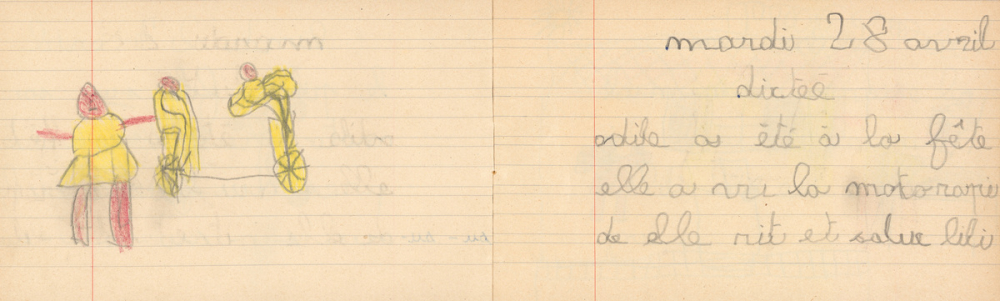 mardi 28 avril
dictée
odile a été à la fête
elle a vu la moto rapi
de elle rit et salue lili